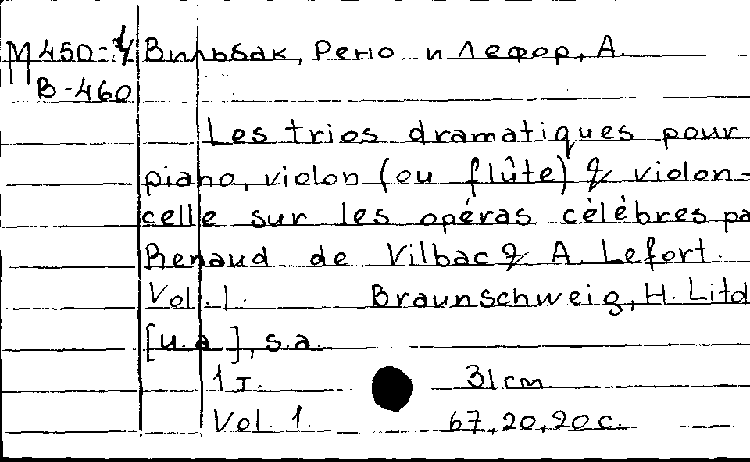 М 450-4 Вильбак, Рено и Лефор, А.
В-460
Les trios dramatiques pour
piano, violon (ou flûte) & violon-
celle sur les opéras célèbres pa
Renaud de Vilbac & A. Lefort.
Vol. 1. Braunschweig, H. Litd
[u.a], s.a.
1 т. 31 cm
Vol. 1. 67, 20, 20 с.